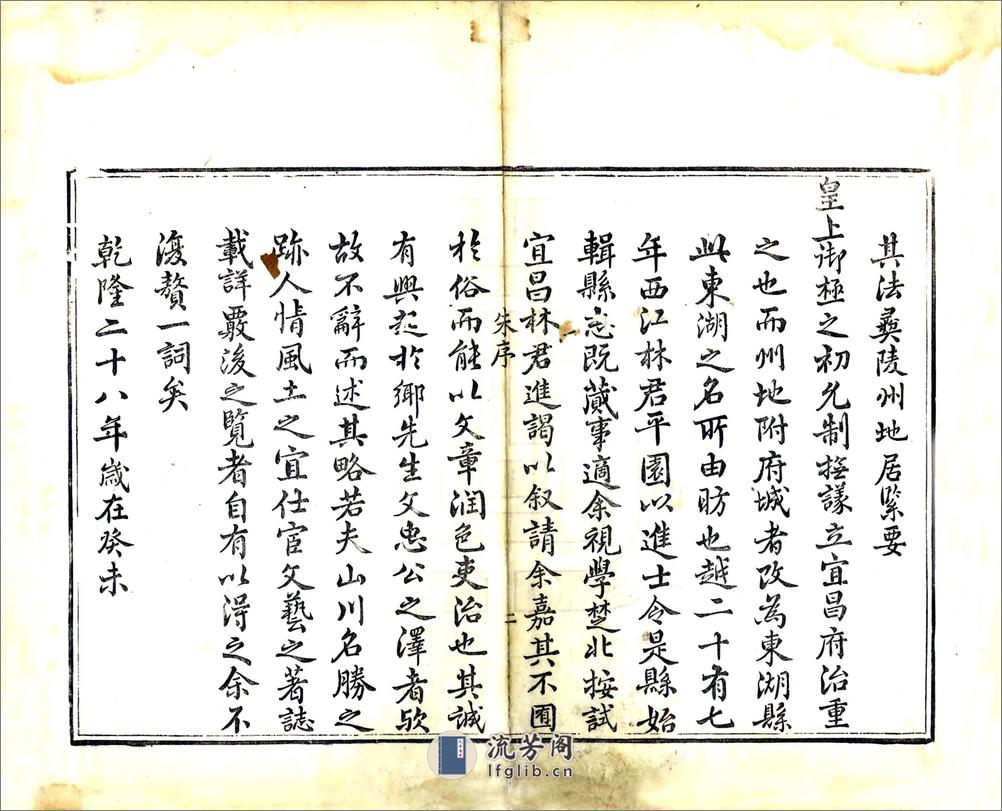 其法彝陵州地居緊要
皇上御極之初允制撫議立宜昌府治重
之也而州地附府城者改為東湖縣
此東湖之名所由昉也越二十有七
年西江林君平園以進士令是縣始
輯縣志既蕆事適余視學楚北按試
宜昌林君進謁以叙請余嘉其不囿
朱序
二
於俗而能以文章潤色吏治也其誠
有興起於鄉先生文忠公之澤者欤
故不辭而述其略若夫山川名勝之
跡人情風土之宜仕宦文藝之著誌
載詳覈後之覽者自有以得之余不
復贅一詞矣
乾隆二十八年歲在癸未
流芳阁
lfglib.cn